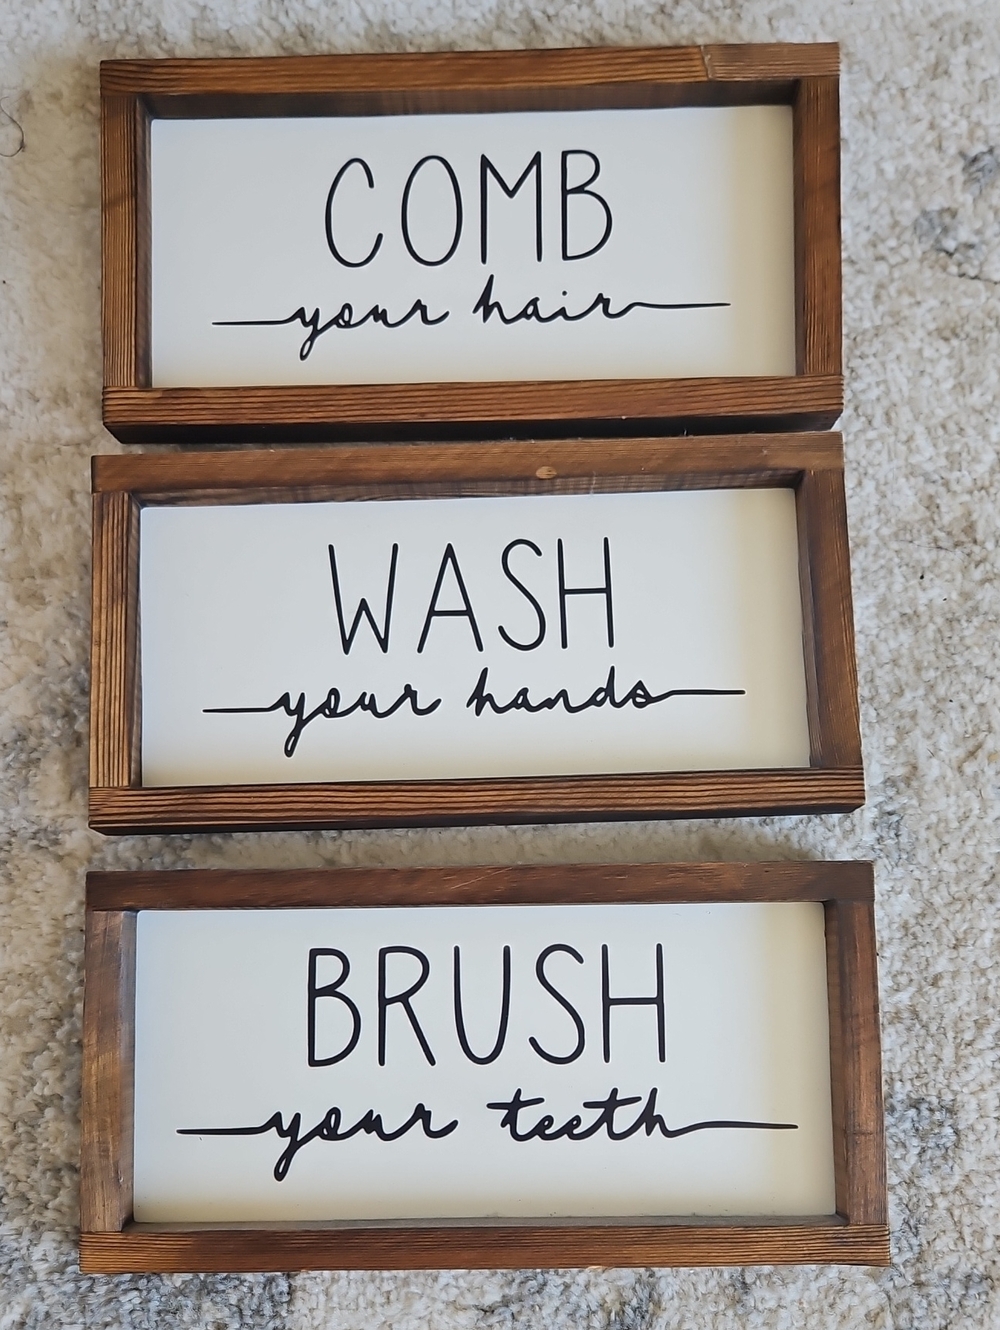 COMB
your hair
WASH
your hands
BRUSH
your teeth